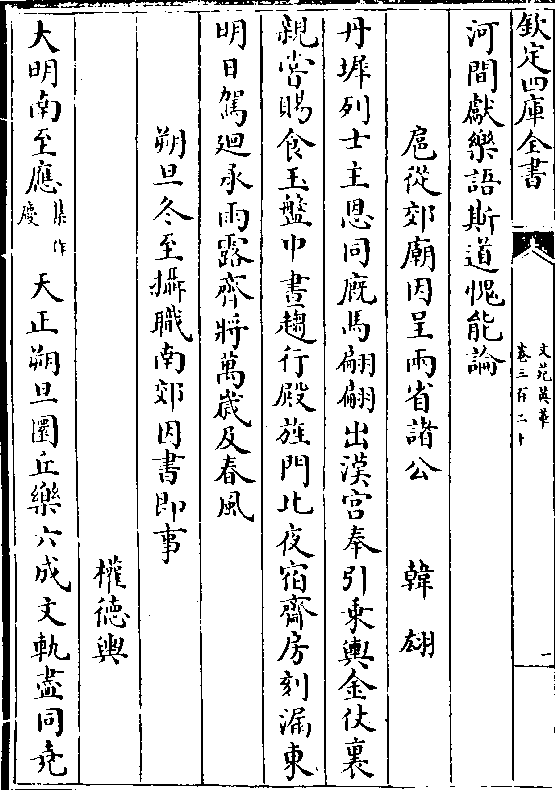 欽定四庫全書
文苑英華
卷三百二十
一
河間獻樂語斯道愧能論
扈從郊廟因呈兩省諸公 韓翃
丹墀列士主恩同廐馬翩翩出漢宮奉引乘輿金仗裏
親嘗賜食玉盤中晝趨行殿旌門北夜宿齋房刻漏東
明日駕廻承雨露齊將萬歲及春風
朔旦冬至攝職南郊因書即事
權德輿
大明南至應集作慶天正朔旦圜丘樂六成文軌盡同堯